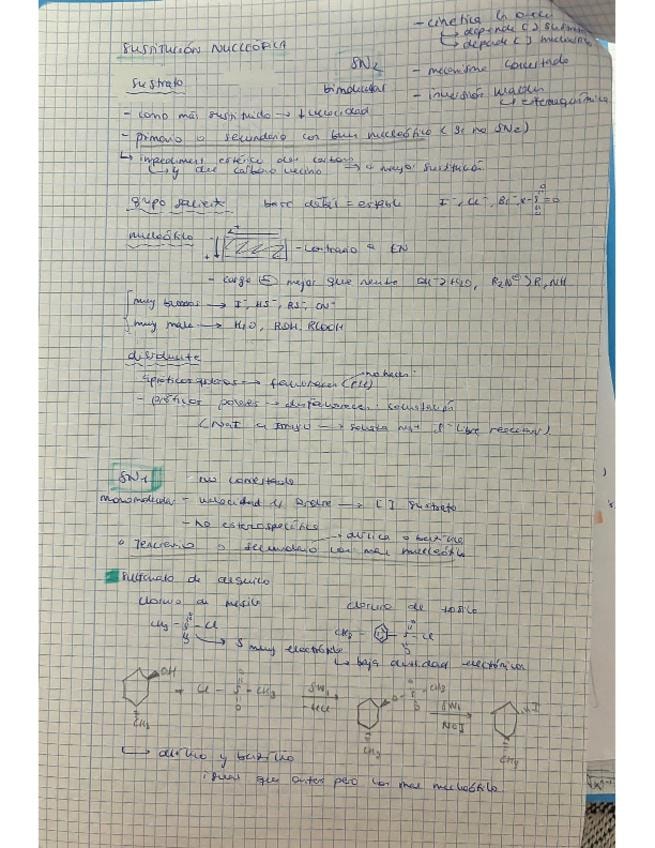 SUSTITUCIÓN NUCLEÓFILA
- cinética
↳ depende [ ] sustrato
↳ depende [ ] nucleófilo
SN2
bimolecular
- mecanismo concertado
- inversión Walden
↳ estereoquímica
Sustrato
- como más sustituido → ↓ velocidad
- primario o secundario con buen nucleófilo (Si no SN2)
↳ impediment estérico del carbono
↳ y del carbono vecino → mayor sustitución
grupo saliente base débil = estable I⁻, Cl⁻, Br⁻, R-S=O
nucleófilo - contrario a EN
- carga ⊖ mejor que neutro OH⁻ > H₂O, R₂N⊖ > R₂NH
muy buenos → I⁻, HS⁻, RS⁻, CN⁻
muy malo → H₂O, ROH, RCOOH
disolvente
apróticos polares → favorecen
- próticos polares → desfavorece: solvatación
(NaI → solvata Na⁺ I⁻ libre reacción)
SN1 no concertado
monomolecular - velocidad 1º orden → [ ] sustrato
- no estereoespecífico
→ alílico o bencílico
o Terciario o secundario con mal nucleófilo
Sulfonato de alquilo
cloruro de mesilo cloruro de tosilo
CH₃ - S - Cl CH₃ - S - Cl
→ S muy electrófilo
↳ baja densidad electrónica
OH + Cl - S - CH₃ -HCl O - S - CH₃ I
CH₃ CH₃ CH₃
↳ alílico y bencílico
igual que antes pero con mal nucleófilo